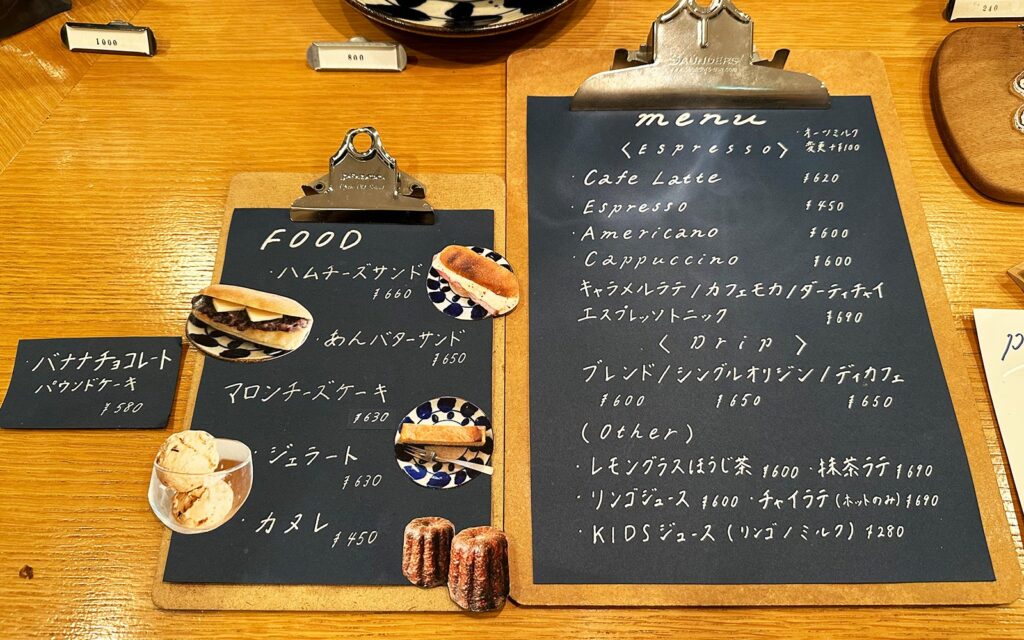 1000
800
240
バナナチョコレート
パウンドケーキ
¥580
FOOD
・ハムチーズサンド
¥660
・あんバターサンド
¥650
マロンチーズケーキ
¥630
・ジェラート
¥630
・カヌレ
¥450
SAUNDERS
menu
・オーツミルク
変更+¥100
〈Espresso〉
・Cafe Latte ¥620
・Espresso ¥450
・Americano ¥600
・Cappuccino ¥600
キャラメルラテ/カフェモカ/ダーティチャイ
エスプレッソトニック ¥690
〈Drip〉
ブレンド/シングルオリジン/ディカフェ
¥600 ¥650 ¥650
(Other)
・レモングラスほうじ茶 ¥600 ・抹茶ラテ ¥690
・リンゴジュース ¥600 ・チャイラテ(ホットのみ) ¥690
・KIDSジュース(リンゴ/ミルク) ¥280